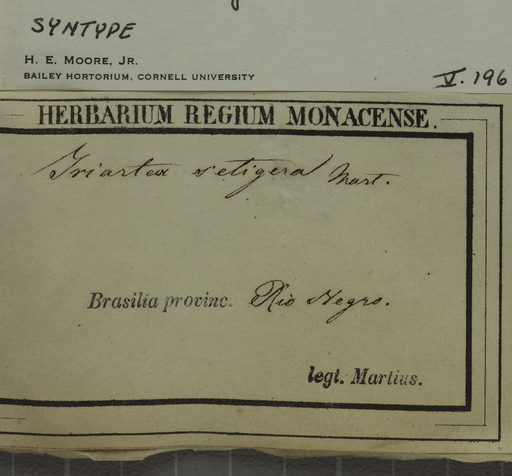 SYNTYPE
H. E. MOORE, JR.
BAILEY HORTORIUM, CORNELL UNIVERSITY
V. 196
HERBARIUM REGIUM MONACENSE.
Iriartea setigera Mart.
Brasilia provinc. Rio Negro.
legt. Martius.